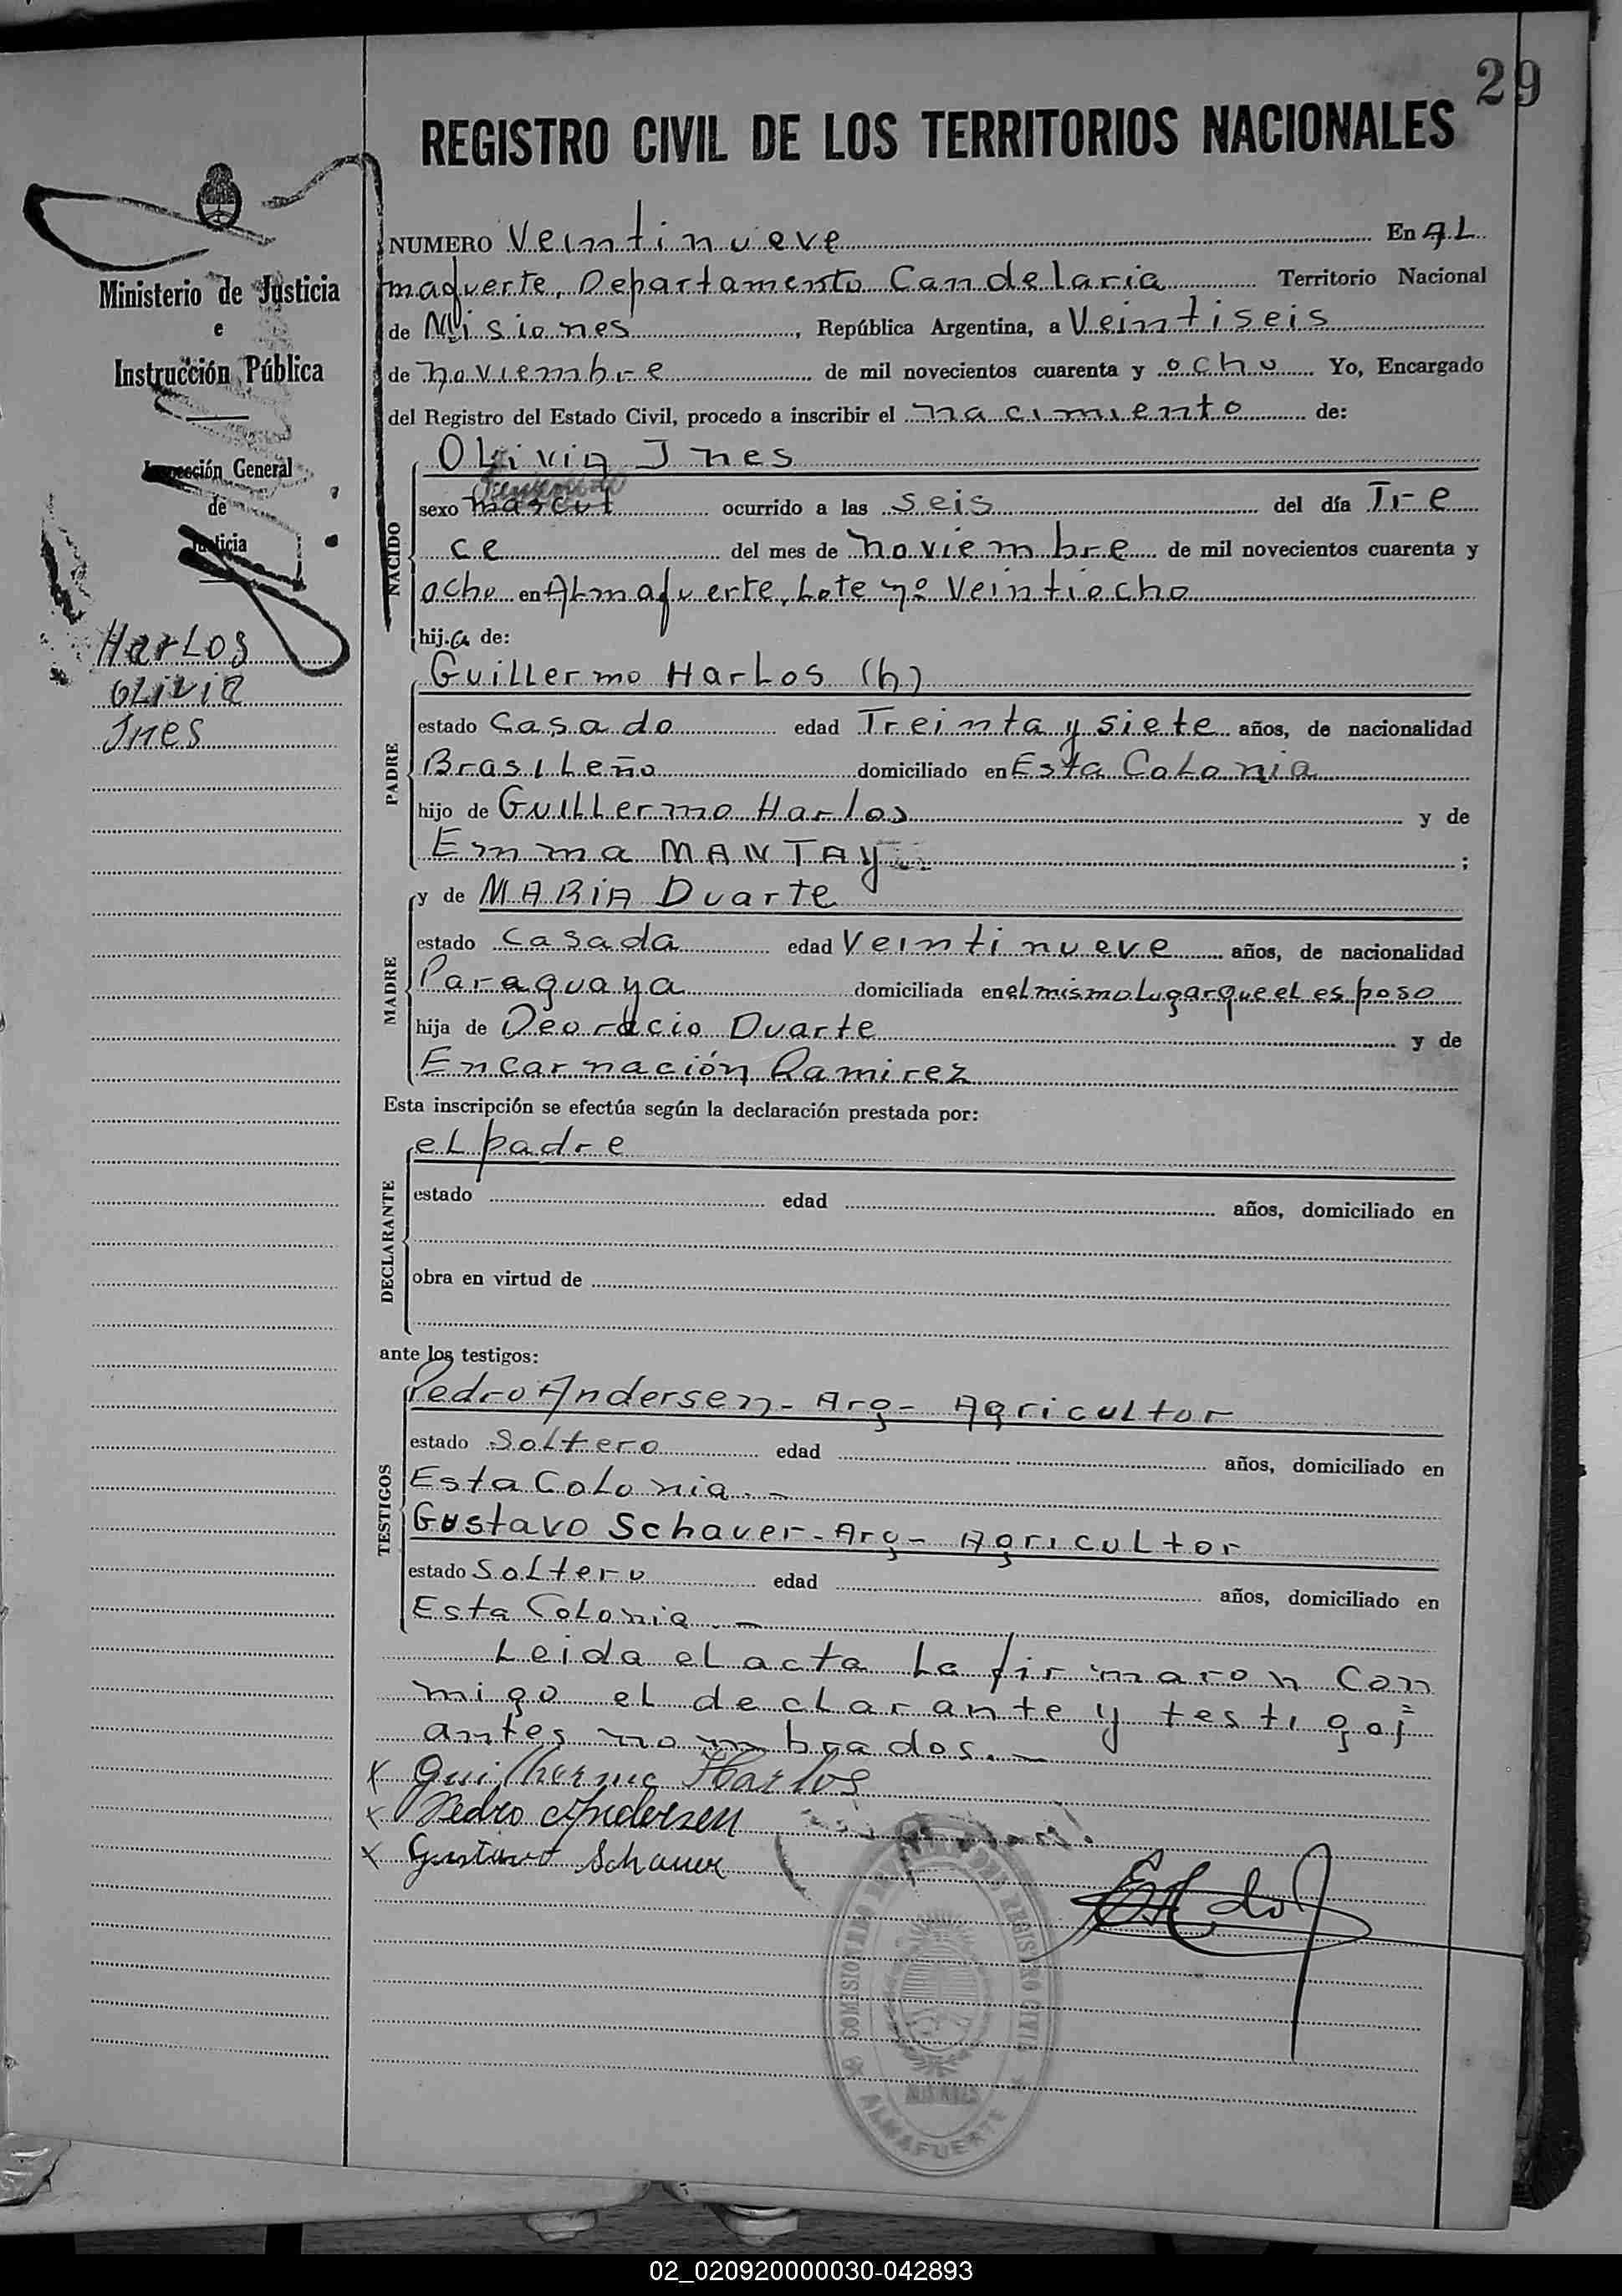 29
REGISTRO CIVIL DE LOS TERRITORIOS NACIONALES
Ministerio de Justicia
e
Instrucción Pública
Inspección General
de
Justicia
HarLos
OLivia
Ines
NUMERO Veintinueve En AL
mafuerte, Departamento Candelaria Territorio Nacional
de Misiones, República Argentina, a Veintiseis
de noviembre de mil novecientos cuarenta y ocho Yo, Encargado
del Registro del Estado Civil, procedo a inscribir el nacimiento de:
NACIDO
OLivia Ines
femenino
sexo mascul ocurrido a las seis del día Tre
ce del mes de noviembre de mil novecientos cuarenta y
ocho en ALmafuerte, Lote nº Veintiocho
hija de:
PADRE
GuiLLermo HarLos (h)
estado Casado edad Treinta y siete años, de nacionalidad
BrasiLeño domiciliado en Esta CoLonia
hijo de GuiLLermo Harlos y de
Emma MANTAY ;
MADRE
y de MARIA Duarte
estado casada edad Veintinueve años, de nacionalidad
Paraguaya domiciliada en eL mismo Lugar que eL esposo
hija de Deoracio Duarte y de
Encarnación Ramirez
Esta inscripción se efectúa según la declaración prestada por:
DECLARANTE
eL padre
estado edad años, domiciliado en
obra en virtud de
ante los testigos:
TESTIGOS
Pedro Andersen - Arg - AgricuLtor
estado SoLtero edad años, domiciliado en
Esta CoLonia. -
Gustavo Schauer - Arg - AgricuLtor
estado SoLtero edad años, domiciliado en
Esta CoLonia. -
Leida eL acta La firmaron Con
migo eL decLarante y testigos
antes nombrados. -
x Guilherme Harlos
x Pedro Andersen
x Gustavo Schauer
COMISIONADO DEL REGISTRO CIVIL
MISIONES
ALMAFUERTE
02_020920000030-042893